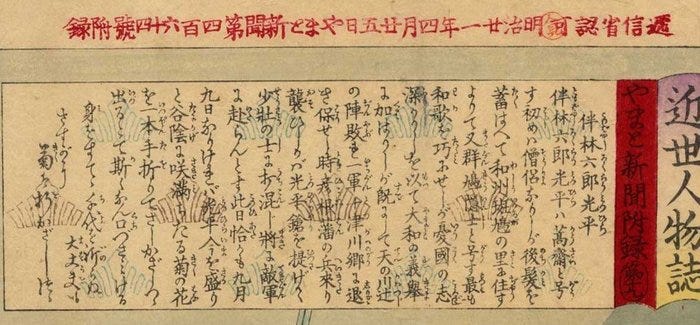 遞信省認可明治廿一年四月廿五日やまと新聞第四百六十四號附録
近世人物誌
やまと新聞附録
伴林六郎光平
伴林六郎光平ハ蒿齋と号
す初めハ僧侶なりしが後髪を
蓄はへて和州斑鳩の里に住す
よりて又群鳩隠士と号す最も
和歌を巧にせしが憂國の志
深かりしを以て大和の義擧
に加はりしが既にして天の川辻
の陣敗れ一軍十津川郷に退
き保せし時彦根藩の兵來り
襲ひしが光平鎗を提げて
少壯の士に混し將に敵軍
に赴かんとす此日恰も九月
九日なりけれバ光平今を盛り
と谷陰に咲満ちたる菊の花
を一本手折りてさしかざしつゝ
出るとて斯くなん口つさミける
身をすてゝ千代ハ祈らぬ
大丈夫も
さすがに
菊ハ折かざしつゝ